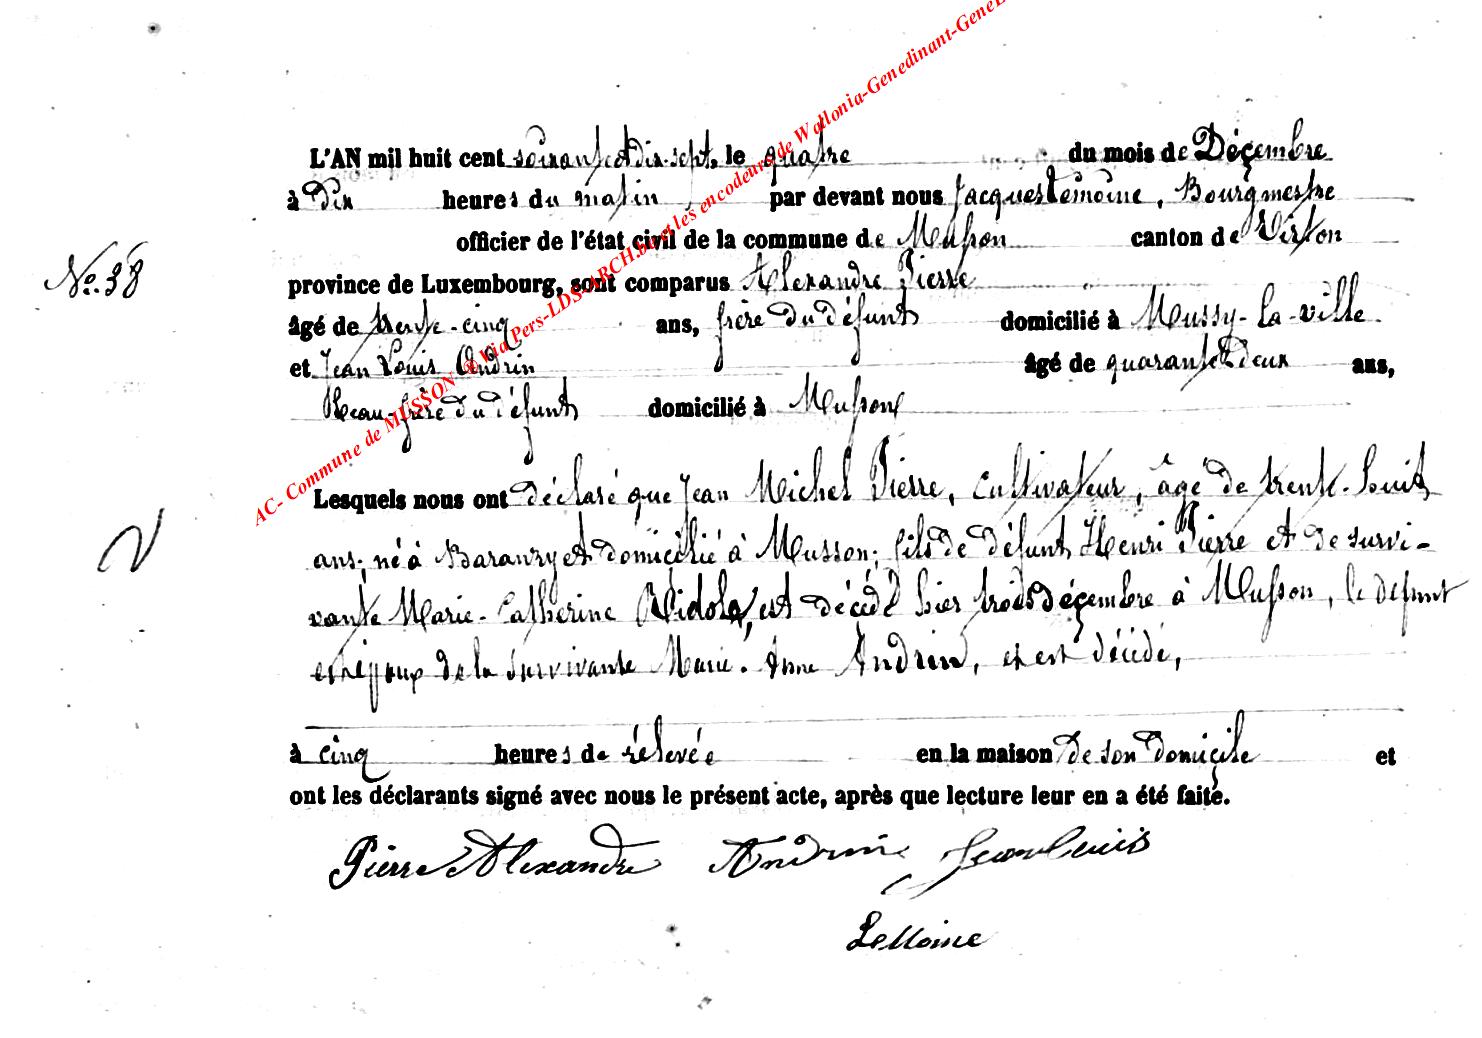 L'AN mil huit cent soixante et dix-sept, le quatre du mois de Décembre
à Dix heures du matin par devant nous Jacques Lemoine, Bourgmestre
officier de l'état civil de la commune de Musson canton de Virton
No. 38
province de Luxembourg, sont comparus Alexandre Pierre
âgé de trente-cinq ans, frère du défunt domicilié à Mussy-la-ville
et Jean Louis Andrin âgé de quarante deux ans,
Beau-frère du défunt domicilié à Musson
Lesquels nous ont déclaré que Jean Michel Pierre, Cultivateur, âgé de trente-huit
ans; né à Baranzy et domicilié à Musson; fils de défunt Henri Pierre et de survi-
vante Marie-Catherine est décédé hier trois décembre à Musson, le défunt
époux de la survivante Marie-Anne Andrin, et est décédé,
à cinq heures de rélevée en la maison de son domicile et
ont les déclarants signé avec nous le présent acte, après que lecture leur en a été faite.
Pierre Alexandre Andrin Jean Louis
Lemoine
AC- Commune de MUSSON Via Pers-LDS-ARCH.be et les encodeurs de Wallonia-Genedinant-GeneL